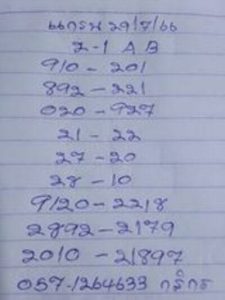 29/7/66
2-1 A B
910 - 201
892 - 221
020 - 927
21 - 22
27 - 20
28 - 10
9120 - 2218
2892 - 2179
2010 - 21897
057-1264633